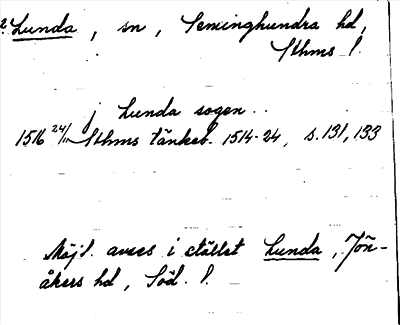 ? Lunda, sn, Seminghundra hd,
Sthms l.
j Lunda sogen..
1516 24/11 Sthms tänkeb. 1514-24, s. 131, 133
Möjl. avses i stället Lunda, Jön-
åkers hd, Söd. l.